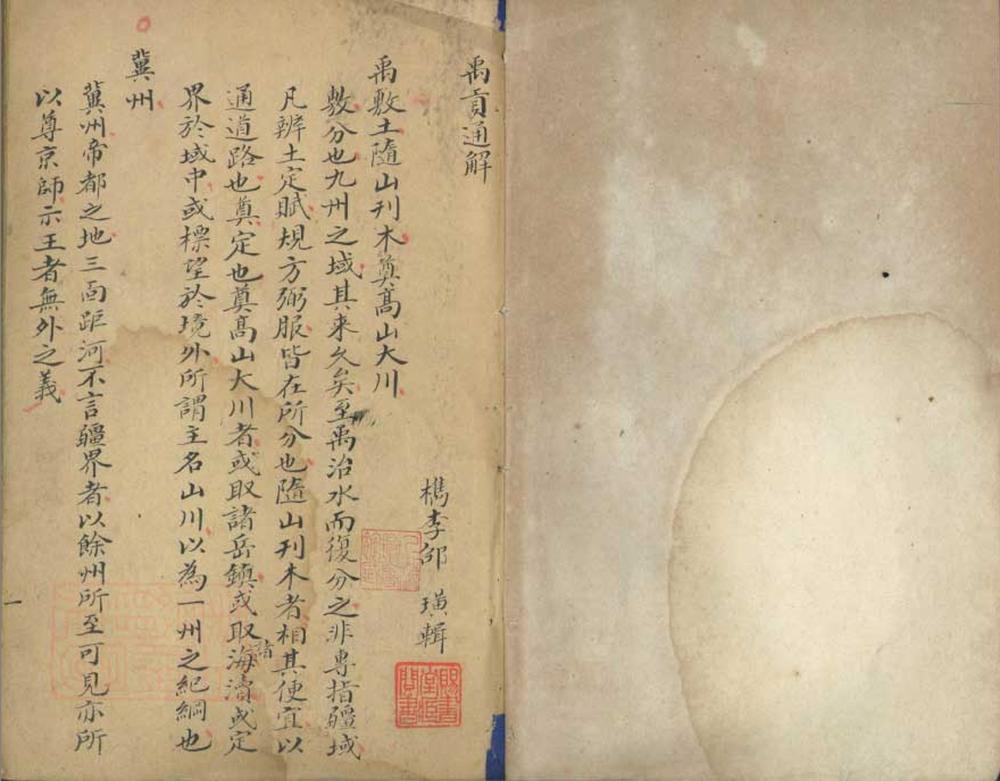 禹貢通解
檇李邵 璜輯
禹敷土隨山刊木奠高山大川
敷分也九州之域其来久矣至禹治水而復分之非專指疆域
凡辨土定賦規方弼服皆在所分也隨山刊木者相其便宜以
通道路也奠定也奠高山大川者或取諸岳鎮或取諸海濤或定
界於域中或標望於境外所謂主名山川以為一州之紀綱也
冀州
冀州帝都之地三面距河不言疆界者以餘州所至可見亦所
以尊京師示王者無外之義
一